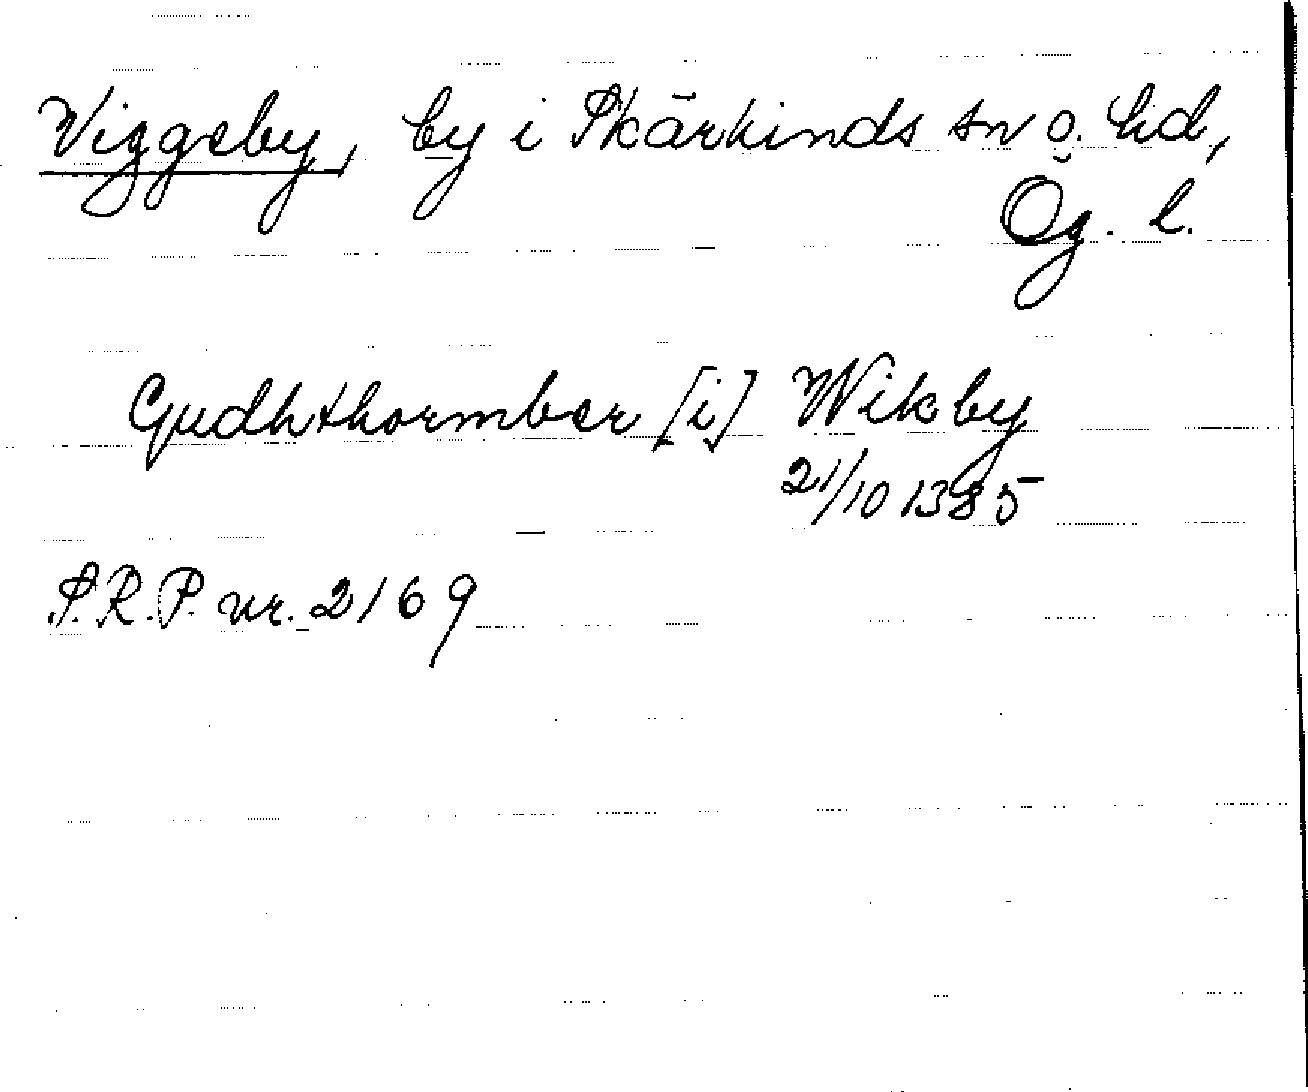 Viggeby, by i Skärkinds sn o. hd,
Ög. l.
Gudhthormber [i] Wikby
21/10 1385
S.R.P. nr. 2169